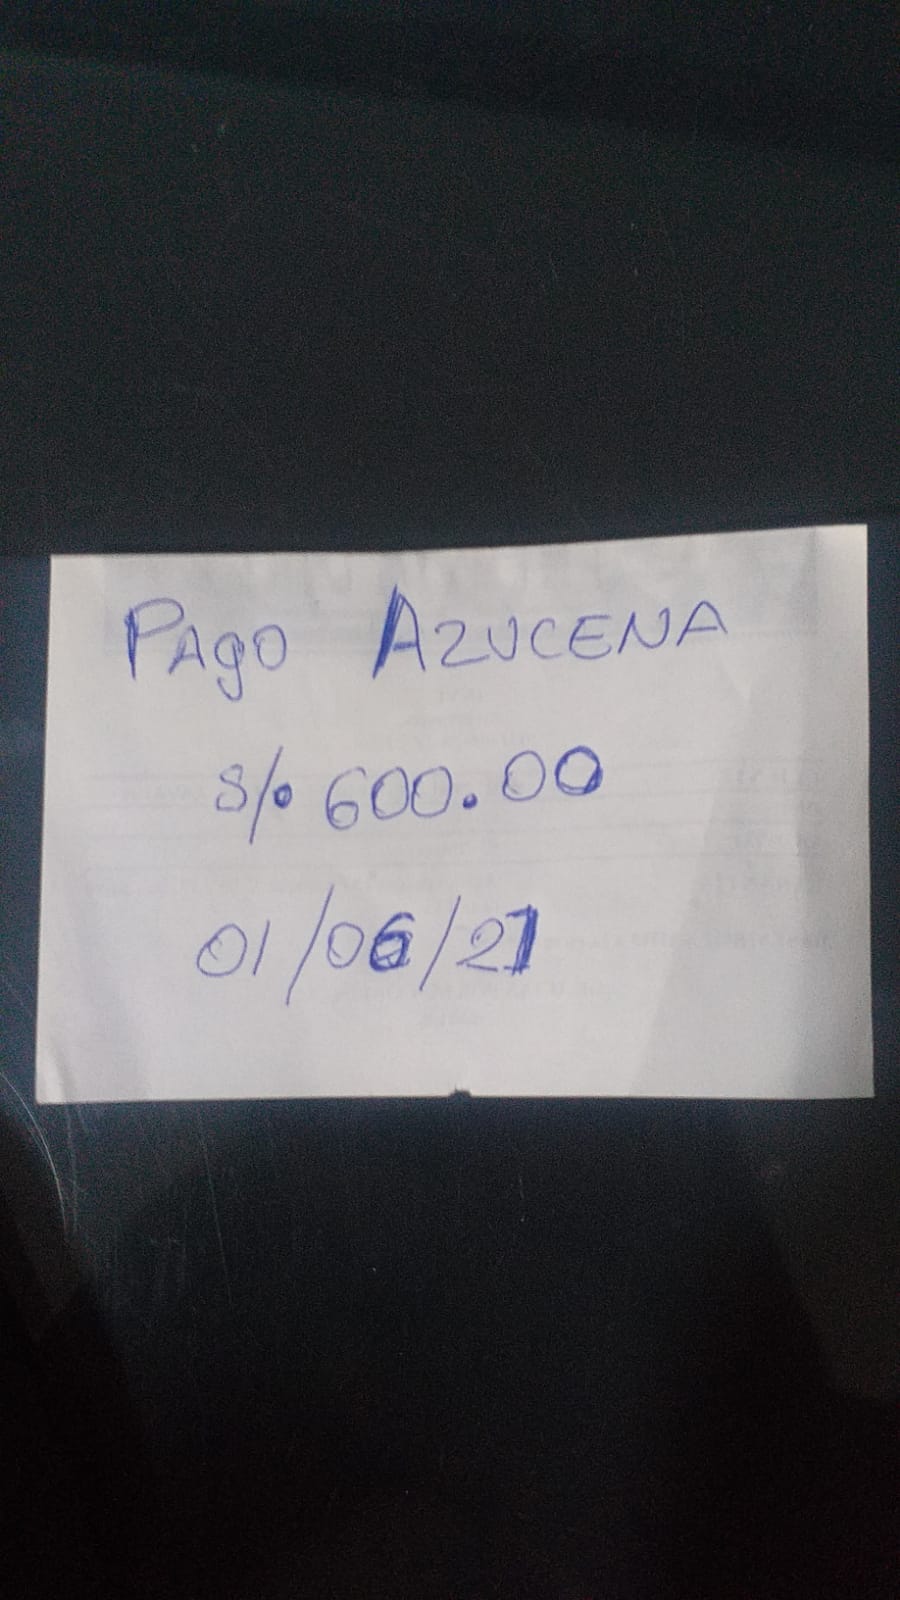 PAgO AZUCENA
S/. 600.00
01/06/21